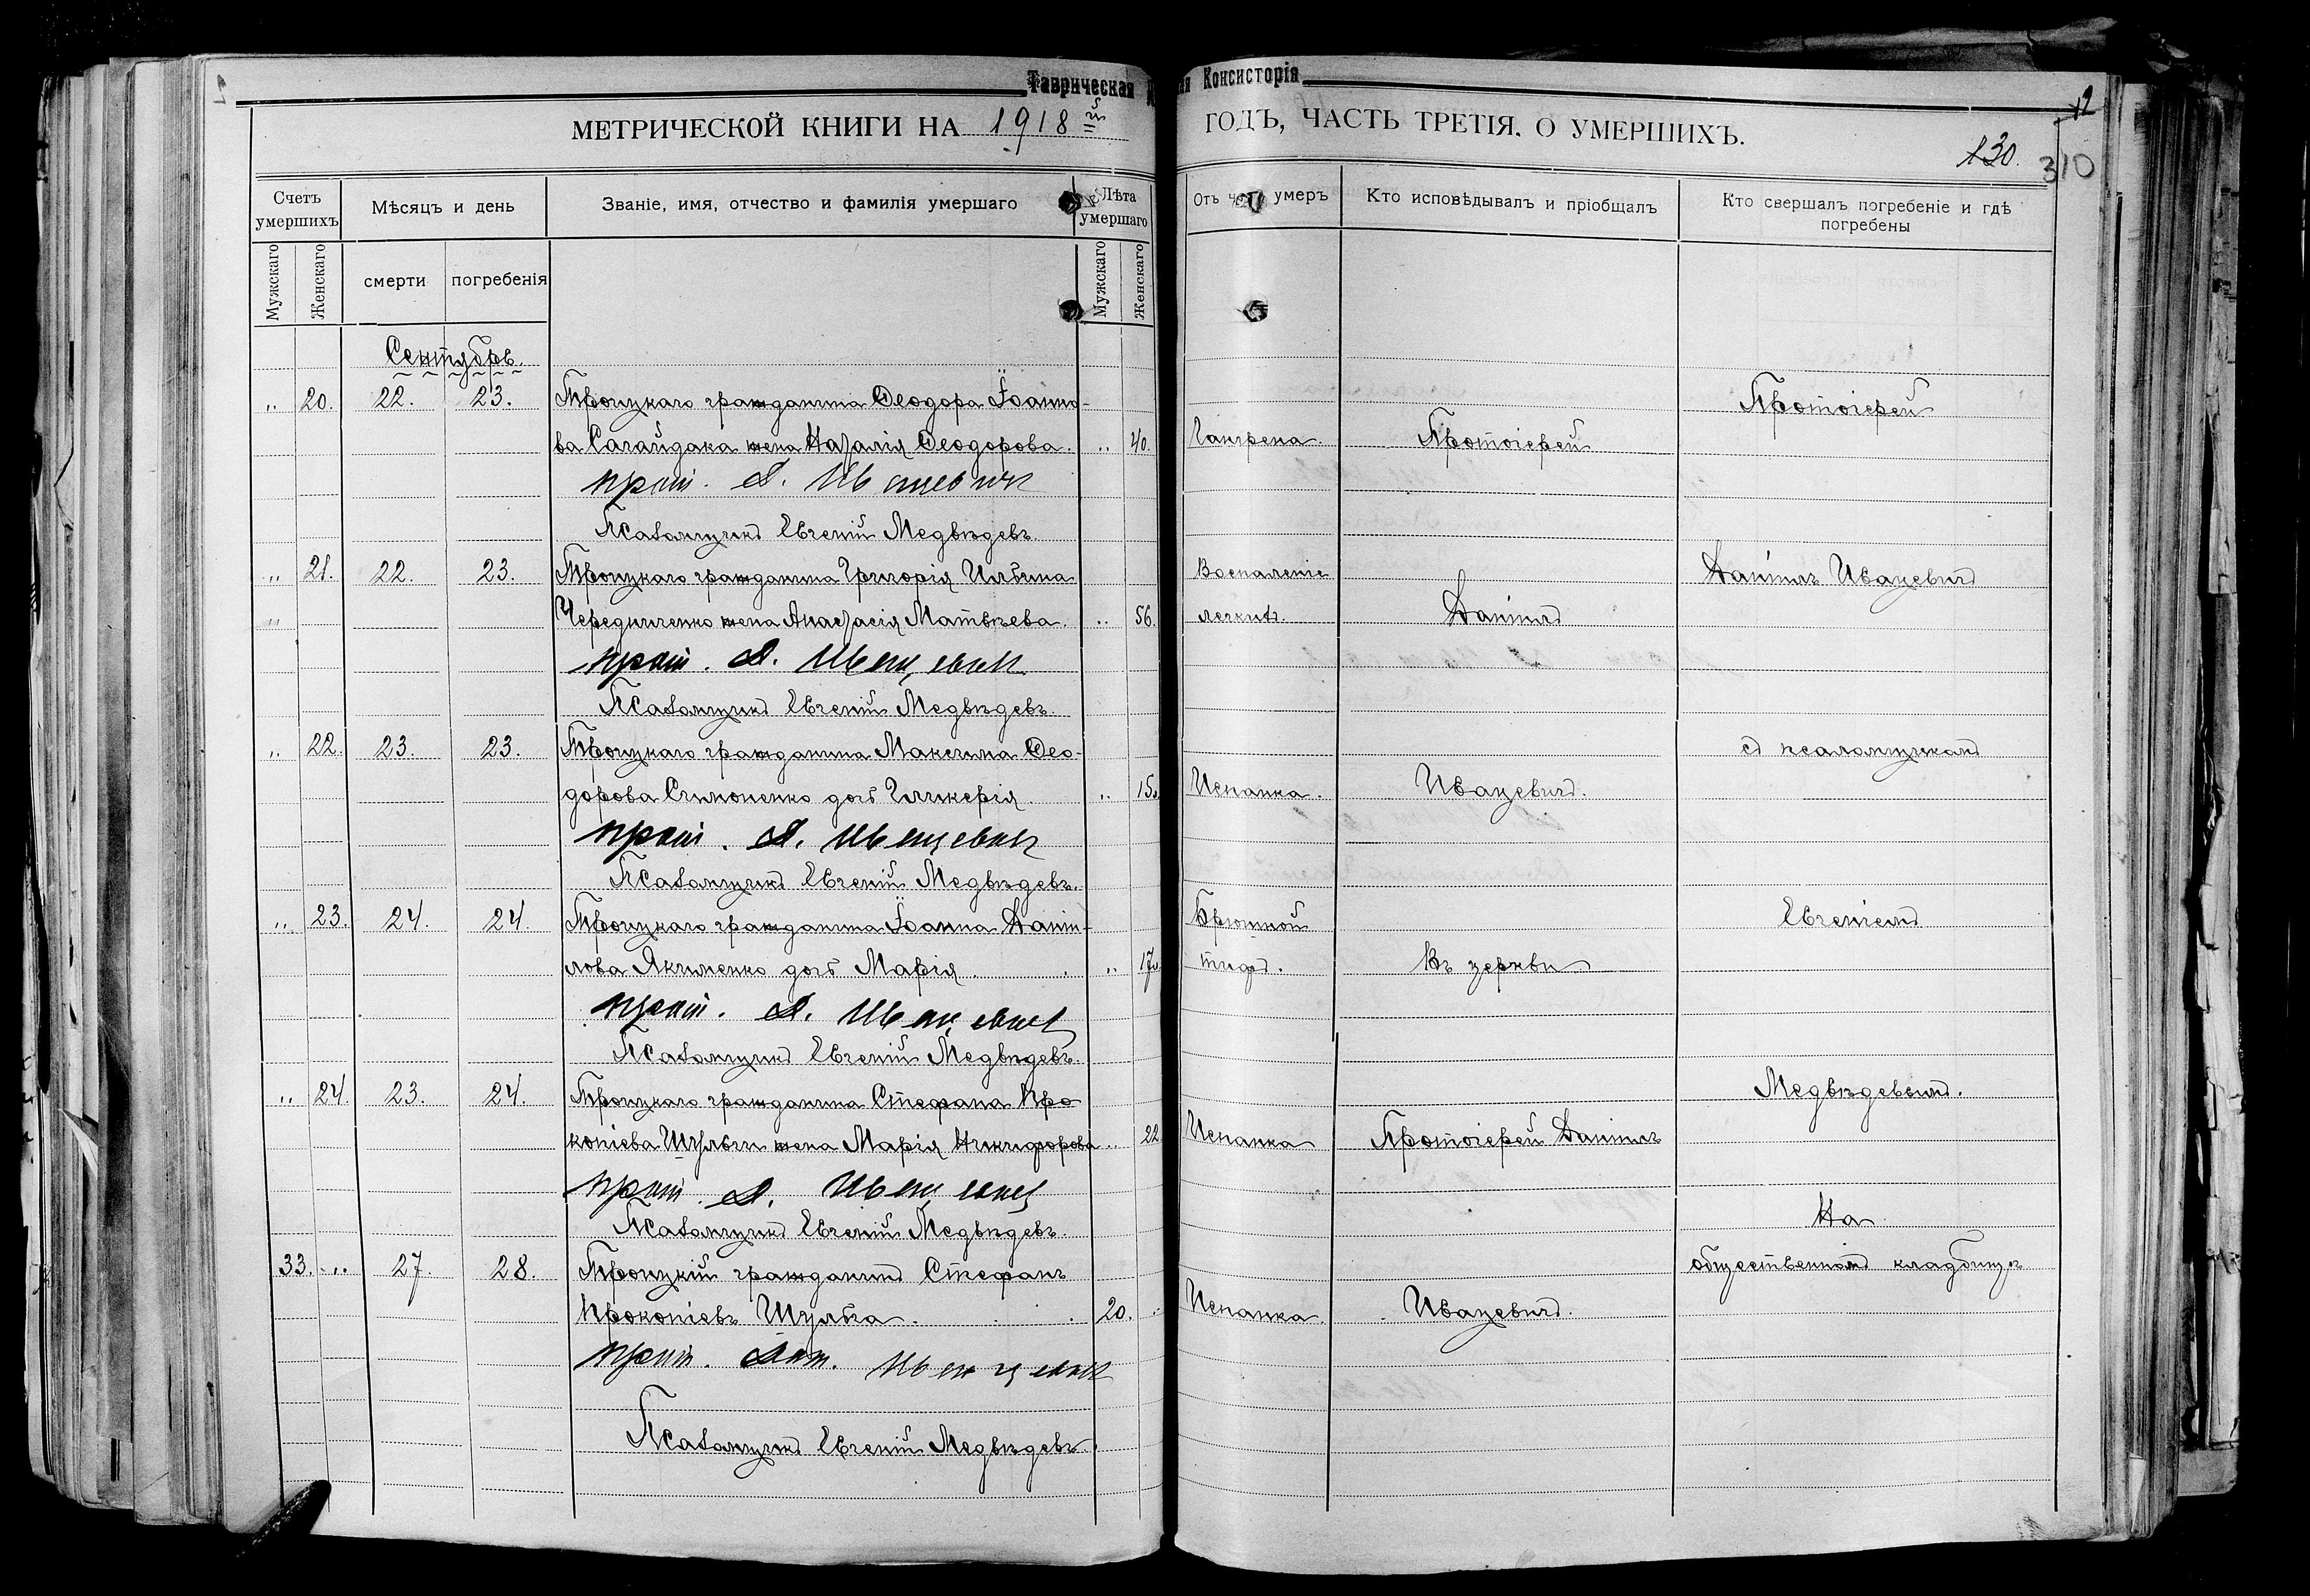 Таврическая
МЕТРИЧЕСКОЙ КНИГИ НА 1918й
Счетъ умершихъ
Мѣсяцъ и день
Званіе, имя, отчество и фамилія умершаго
Лѣта умершаго
Мужскаго
Женскаго
смерти
погребенія
Мужскаго
Женскаго
Сентябрь.
„ 20. 22. 23. Троицкаго гражданина Ѳеодора Іоанно-
ва Сагайдака жена Наталія Ѳеодорова. „ 40.
прот. Д. Иваневич
Псаломщикъ Евгеній Медвѣдевъ.
„ 21. 22. 23. Троицкаго гражданина Григорія Ильина
„ Чередниченко жена Анастасія Матвѣева. „ 56.
прот. Д. Иваневич
Псаломщикъ Евгеній Медвѣдевъ.
„ 22. 23. 23. Троицкаго гражданина Максима Ѳео-
дорова Симоненко дочь Гликерія. „ 15.
прот. Д. Ивацевич
Псаломщикъ Евгеній Медвѣдевъ.
„ 23. 24. 24. Троицкаго гражданина Іоанна Даніи-
лова Якименко дочь Марія. „ 17.
прот. Д. Ивацевич
Псаломщикъ Евгеній Медвѣдевъ.
„ 24. 23. 24. Троицкаго гражданина Стефана Про
копіева Шульги жена Марія Никифорова „ 22
прот. Д. Ивацевич
Псаломщикъ Евгеній Медвѣдевъ.
33. „ 27. 28. Троицкій гражданинъ Стефанъ
Прокопіевъ Шульга. 20.
прот. Дан. Ивацевич
Псаломщикъ Евгеній Медвѣдевъ.
Консисторія
12
ГОДЪ, ЧАСТЬ ТРЕТІЯ, О УМЕРШИХЪ.
130.
310
Отъ чего умеръ
Кто исповѣдывалъ и пріобщалъ
Кто свершалъ погребеніе и гдѣ погребены
Протоіерей
Гангрена. Протоіерей
Воспаленіе Даніилъ Ивацевичъ
легкихъ. Даніилъ
съ псаломщикомъ
Испанка. Ивацевичъ.
Брюшной Евгеніемъ
тифъ. Въ церкви
Медвѣдевымъ.
Испанка Протоіерей Даніилъ
На
общественномъ кладбищѣ
Испанка. Ивацевичъ.